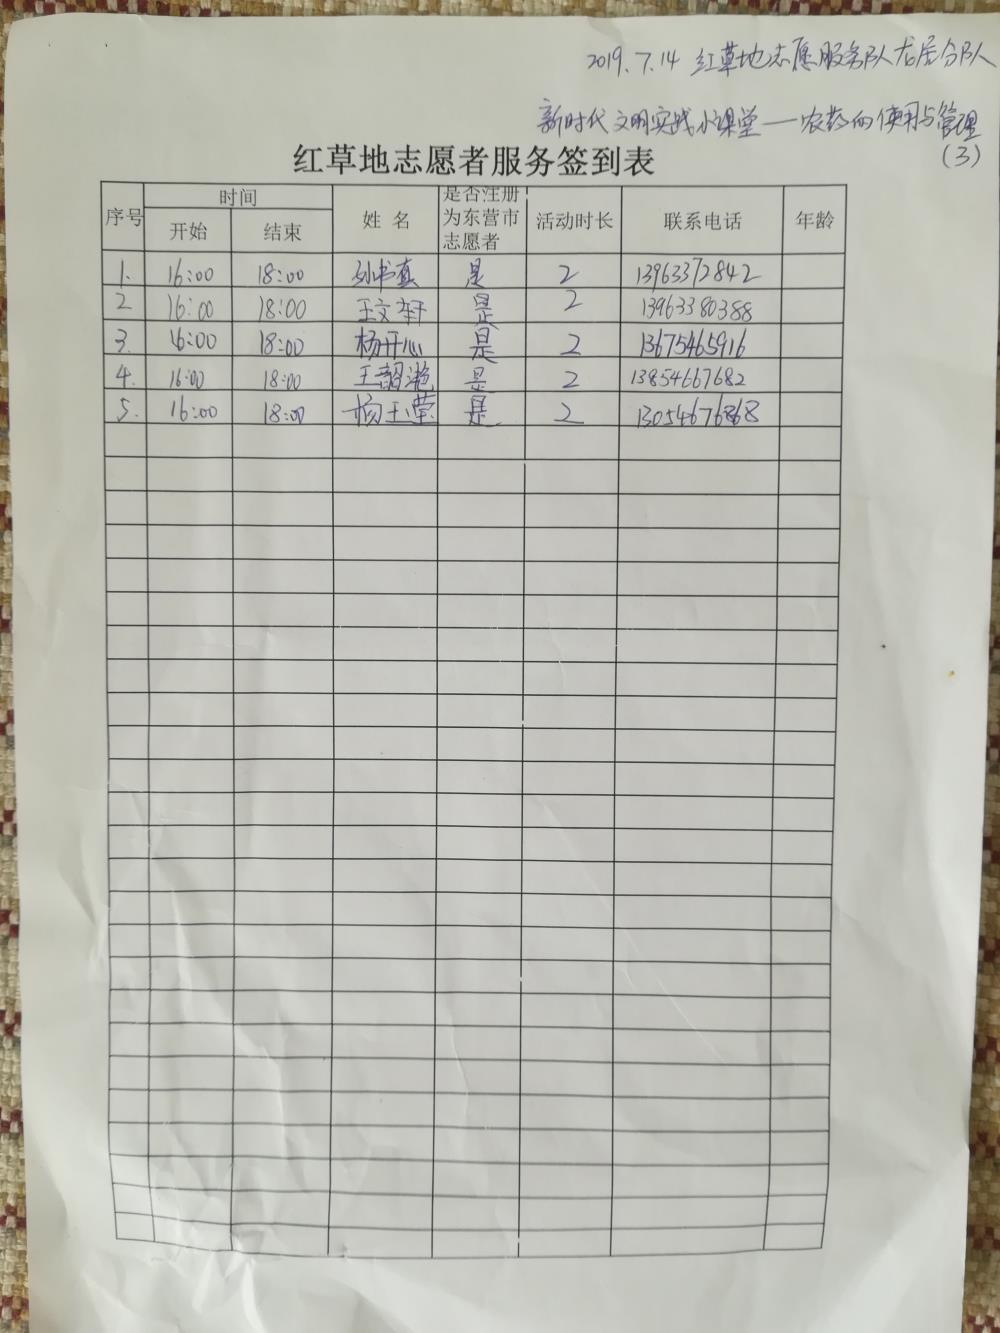 2019.7.14 红草地志愿服务队龙居分队
新时代文明实践小课堂——农药的使用与管理
(3)
红草地志愿者服务签到表
序号 时间 姓名 是否注册为东营市志愿者 活动时长 联系电话 年龄
开始 结束
1. 16:00 18:00 孙书真 是 2 13963372842
2 16:00 18:00 王文轩 是 2 13963380388
3. 16:00 18:00 杨开心 是 2 13675465916
4. 16:00 18:00 王韶滟 是 2 13854667682
5. 16:00 18:00 杨玉莹 是 2